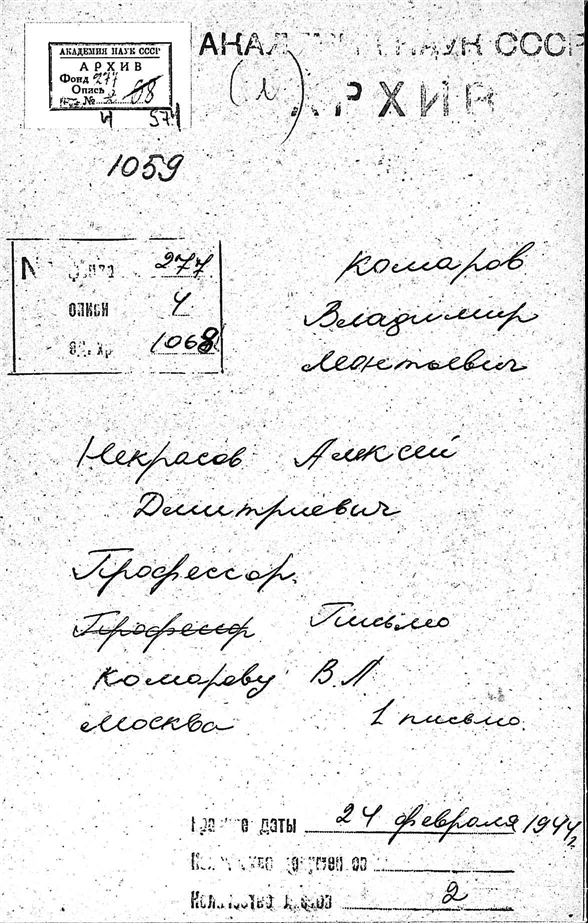 АКАДЕМИЯ НАУК СССР
АРХИВ
Фонд 277
Опись
№
4 571
АКАДЕМИЯ НАУК СССР
(1) АРХИВ
1059
№ фонда 277
описи 4
ед. хр. 1068
Комаров
Владимир
Леонтьевич
Некрасов Алексей
Дмитриевич
Профессор.
Профессор Письмо
Комарову В.Л.
Москва 1 письмо
Крайние даты 24 февраля 1944 г.
Количество документов
Количество листов 2